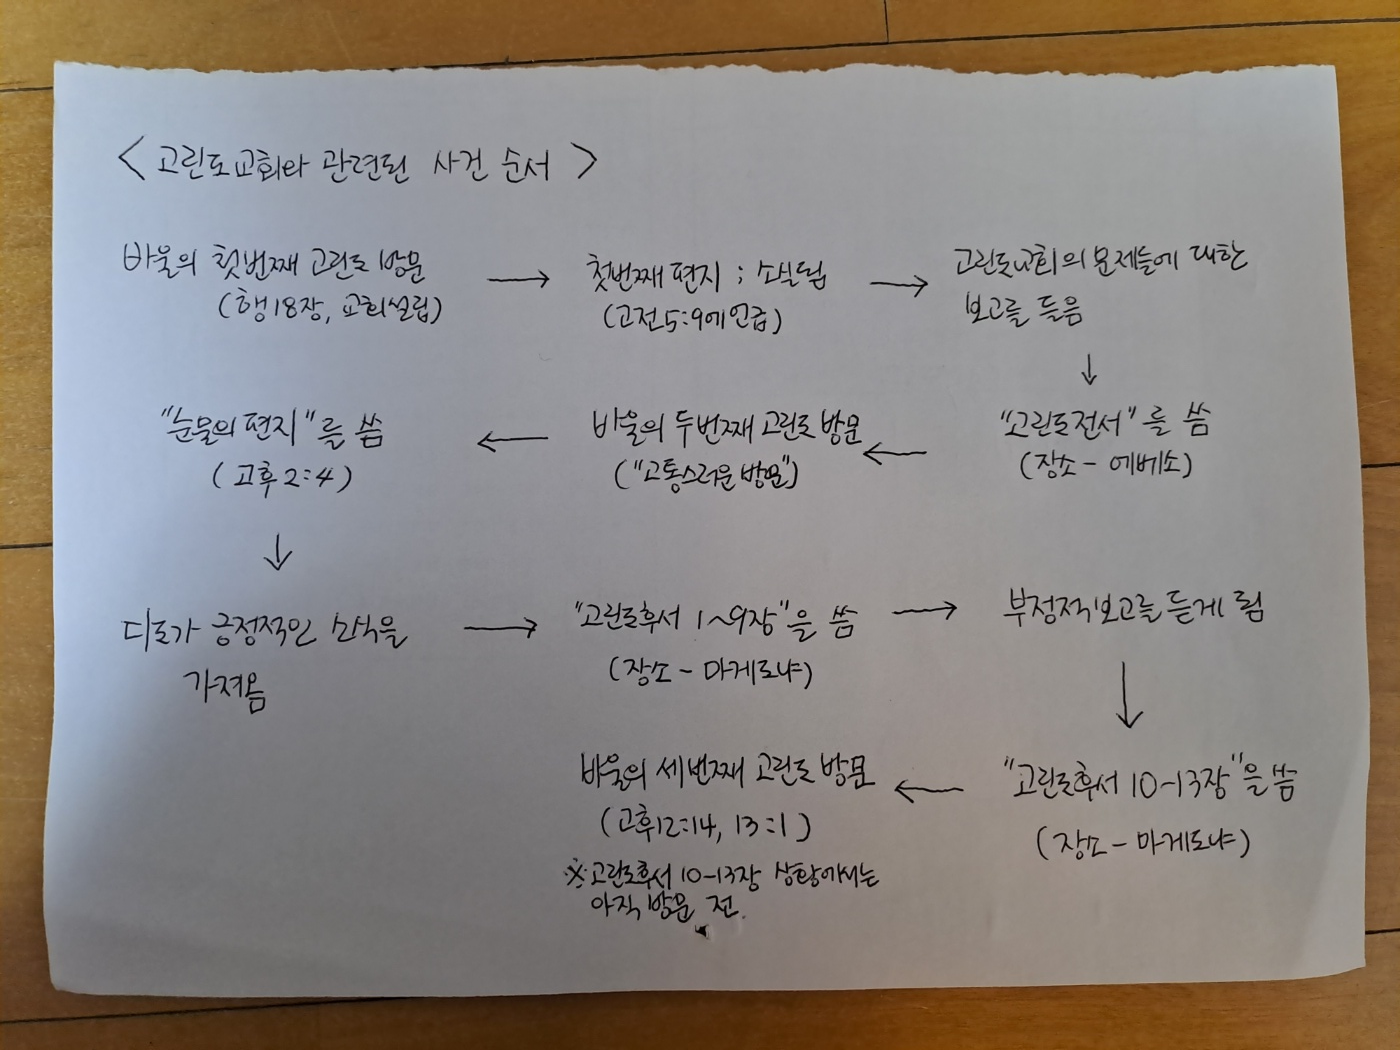 <고린도교회와 관련된 사건 순서>
바울의 첫번째 고린도 방문
(행18장, 교회설립)
→
첫번째 편지 ; 소실됨
(고전5:9에 언급)
→
고린도교회의 문제들에 대한
보고를 들음
↓
"고린도전서"를 씀
(장소 - 에베소)
←
바울의 두번째 고린도 방문
("고통스러운 방문")
←
"눈물의 편지"를 씀
(고후 2:4)
↓
디도가 긍정적인 소식을
가져옴
→
"고린도후서 1~9장"을 씀
(장소 - 마게도냐)
→
부정적 보고를 듣게 됨
↓
"고린도후서 10-13장"을 씀
(장소 - 마게도냐)
←
바울의 세번째 고린도 방문
(고후12:14, 13:1)
※고린도후서 10-13장 상황에서는
아직 방문 전.